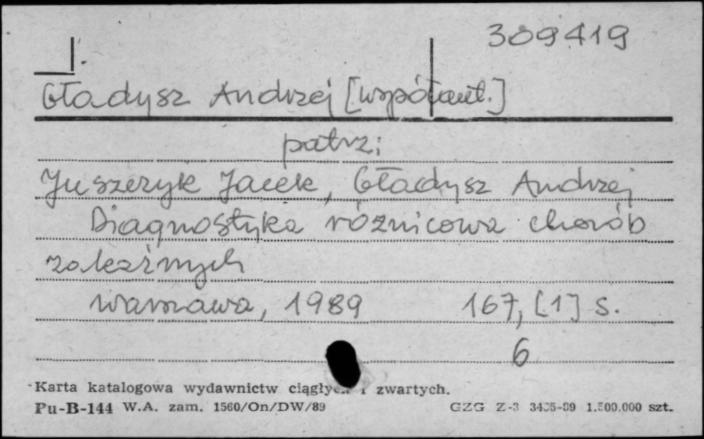 309419
Gładysz Andrzej [współaut.]
patrz:
Juszczyk Jacek, Gładysz Andrzej
Diagnostyka różnicowa chorób
zakaźnych
Warszawa, 1989 167, [1] s.
6
Karta katalogowa wydawnictw ciągłych i zwartych.
Pu-B-144 W.A. zam. 1560/On/DW/89 GZG Z-3 1.500.000 szt.